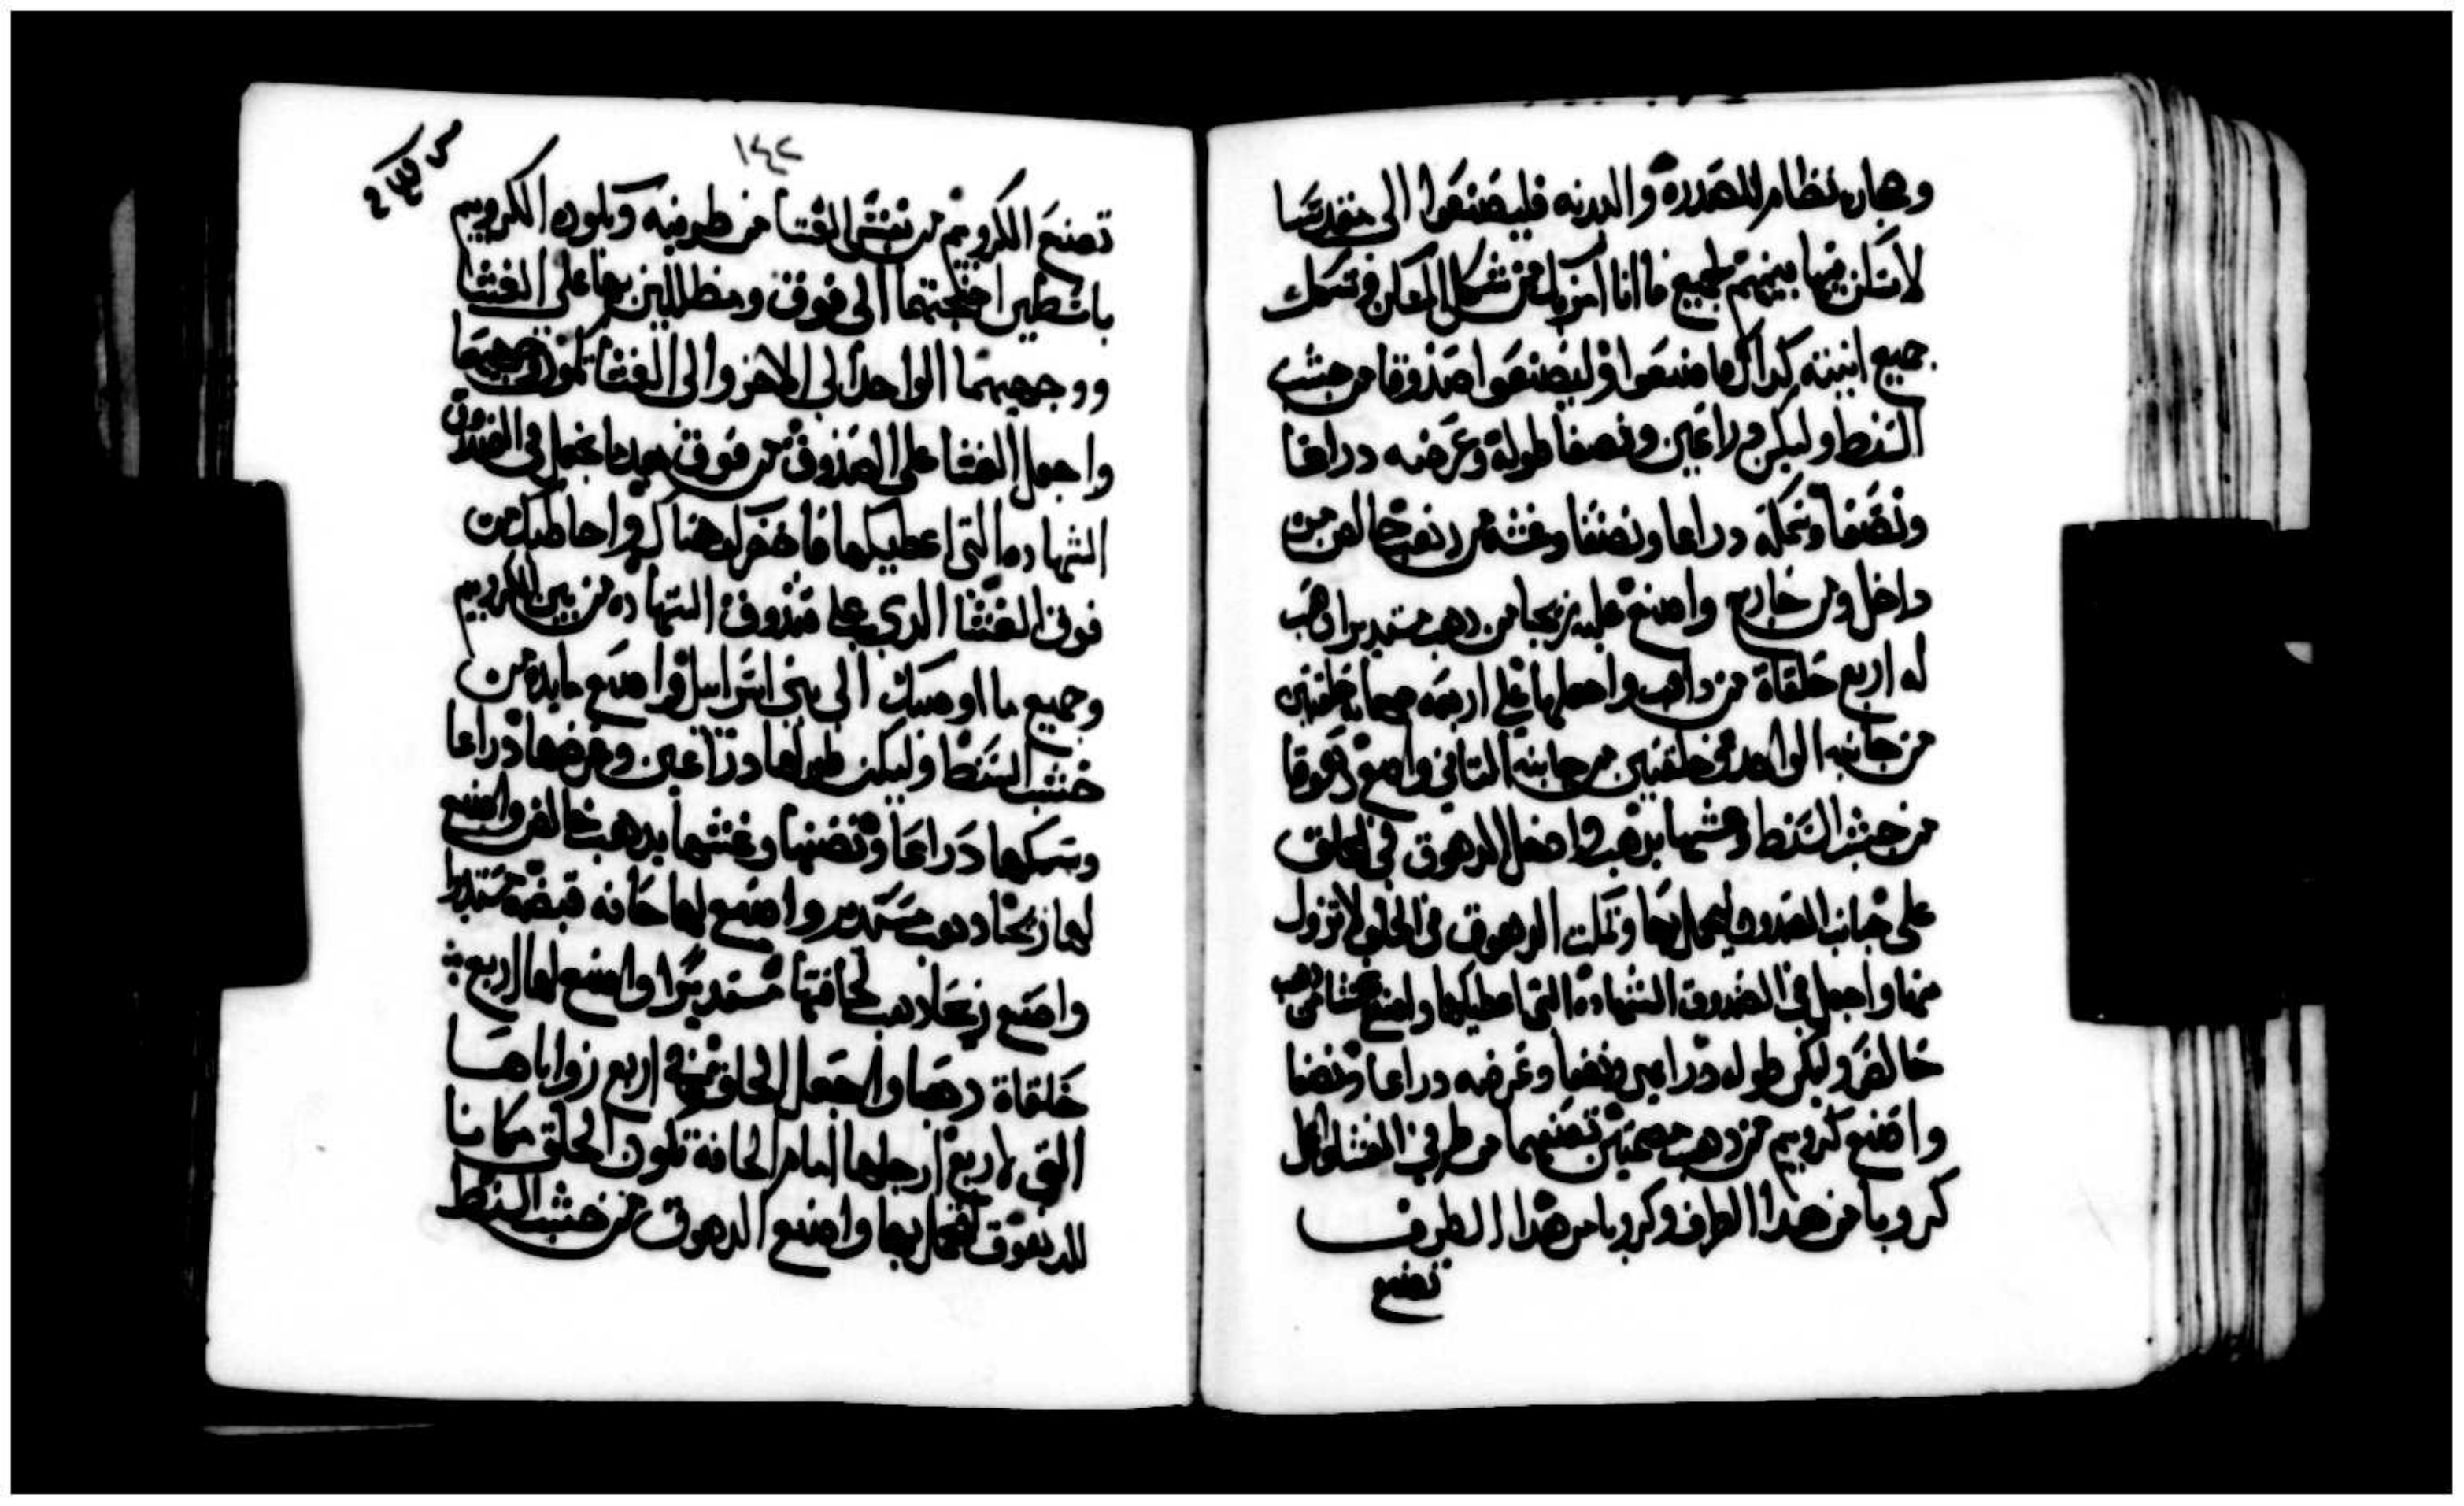 وحجاره نظام للصدره والبدنه فليصنعوا الى مقدسا
لاسكن فيما بينهم لجميع ما انا اخربك من شكل المسكن وشكل
جميع انيته كدلك فاصنعوا وليصنعوا صندوقا من خشب
السنط وليكن دراعين ونصفا طوله وعرضه دراعا
ونصفا وسمكه دراعا ونصفا وغشه بدهب خالص من
داخل ومن خارج واصنع عليه زيجا من دهب مستديرا
له اربع حلقاة من داهب واجعلها على اربعه جهاته حلقتين
من جانبه الواحد وحلقتين من جانبه التاني واصنع دهوقا
من خشب السنط وغشها بدهب وادخل الدهوق في الحلق
على جانب الصندوق ليحمل بها وتكن الدهوق في الحلق لا تزول
منها واجعل في الصندوق الشهاده التي اعطيكها واصنع غشا من دهب
خالص وليكن طوله دراعين ونصفا وعرضه دراعا ونصفا
واصنع كروبيم من دهب مصمتين تصنعهما من طرفي الغشا
كروبا من هدا الطرف وكروبا من هدا الطرف
تصنع
١٤٢
تصنع الكروبيم من نفس الغشا من طرفيه ويكون الكروبيم
باسطين اجنحتهما الى فوق ومظللين بها على الغشا
ووجهيهما الواحد الى الاخر والى الغشا تكون وجهيهما
واجعل الغشا على الصندوق من فوق بعدما تجعل في الصندوق
الشهاده التي اعطيكها فاحضر لك هناك واخاطبك من
فوق الغشا الدي على صندوق الشهاده من بين الكروبيم
وجميع ما اوصيك الى بني اسراييل واصنع مايده من
خشب السنط وليكن طولها دراعين وعرضها دراعا
وسمكها دراعا ونصفها وغشها بدهب خالص واصنع
لها زيجا دهب مستدير واصنع لها حافه قبضه مستديرا
واصنع زيجا دهب لحافتها مستديرا واصنع لها اربع
حلقاة دهبا واجعل الحلق في اربع زواياها
التي لاربع ارجلها امام الحافة تكون الحلق مكانا
للدهوق لتحمل بها واصنع الدهوق من خشب السنط